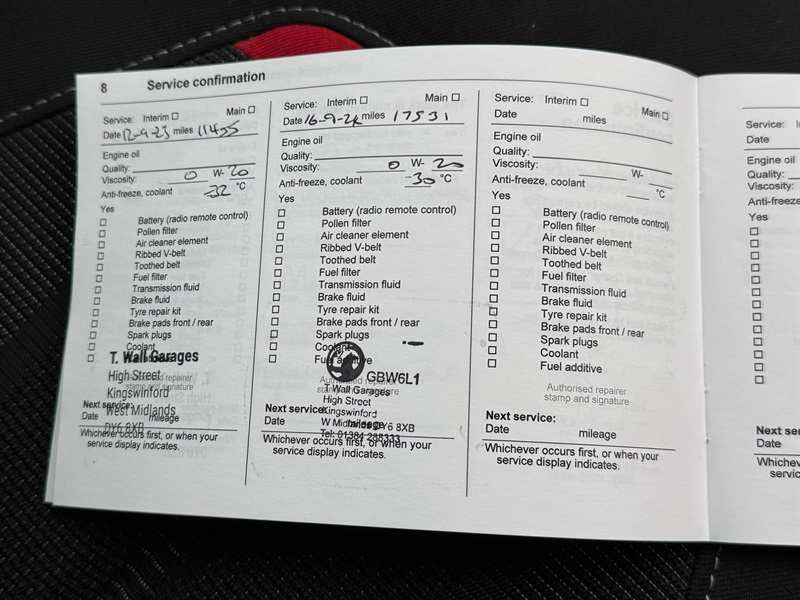 8 Service confirmation
Service: Interim □ Main □
Date 12-9-23 miles 11455
Engine oil
Quality:
Viscosity: 0 W- 20
Anti-freeze, coolant -32 °C
Yes
□ Battery (radio remote control)
□ Pollen filter
□ Air cleaner element
□ Ribbed V-belt
□ Toothed belt
□ Fuel filter
□ Transmission fluid
□ Brake fluid
□ Tyre repair kit
□ Brake pads front / rear
□ Spark plugs
□ Coolant
□
T. Wall Garages
High Street
Kingswinford
West Midlands
DY6 8XB
Authorised repairer
stamp and signature
Next service:
Date mileage
Whichever occurs first, or when your
service display indicates.
Service: Interim □ Main □
Date 16-9-24 miles 17531
Engine oil
Quality:
Viscosity: 0 W- 20
Anti-freeze, coolant -30 °C
Yes
□ Battery (radio remote control)
□ Pollen filter
□ Air cleaner element
□ Ribbed V-belt
□ Toothed belt
□ Fuel filter
□ Transmission fluid
□ Brake fluid
□ Tyre repair kit
□ Brake pads front / rear
□ Spark plugs
□ Coolant
□ Fuel additive
GBW6L1
Authorised repairer
stamp and signature
T. Wall Garages
High Street
Kingswinford
W Midlands DY6 8XB
Tel: 01384 288333
Next service:
Date mileage
Whichever occurs first, or when your
service display indicates.
Service: Interim □ Main □
Date miles
Engine oil
Quality:
Viscosity: W-
Anti-freeze, coolant °C
Yes
□ Battery (radio remote control)
□ Pollen filter
□ Air cleaner element
□ Ribbed V-belt
□ Toothed belt
□ Fuel filter
□ Transmission fluid
□ Brake fluid
□ Tyre repair kit
□ Brake pads front / rear
□ Spark plugs
□ Coolant
□ Fuel additive
Authorised repairer
stamp and signature
Next service:
Date mileage
Whichever occurs first, or when your
service display indicates.
Service:
Date
Engine oil
Quality:
Viscosity:
Anti-freeze
Yes
Next se
Date
Whichev
servic